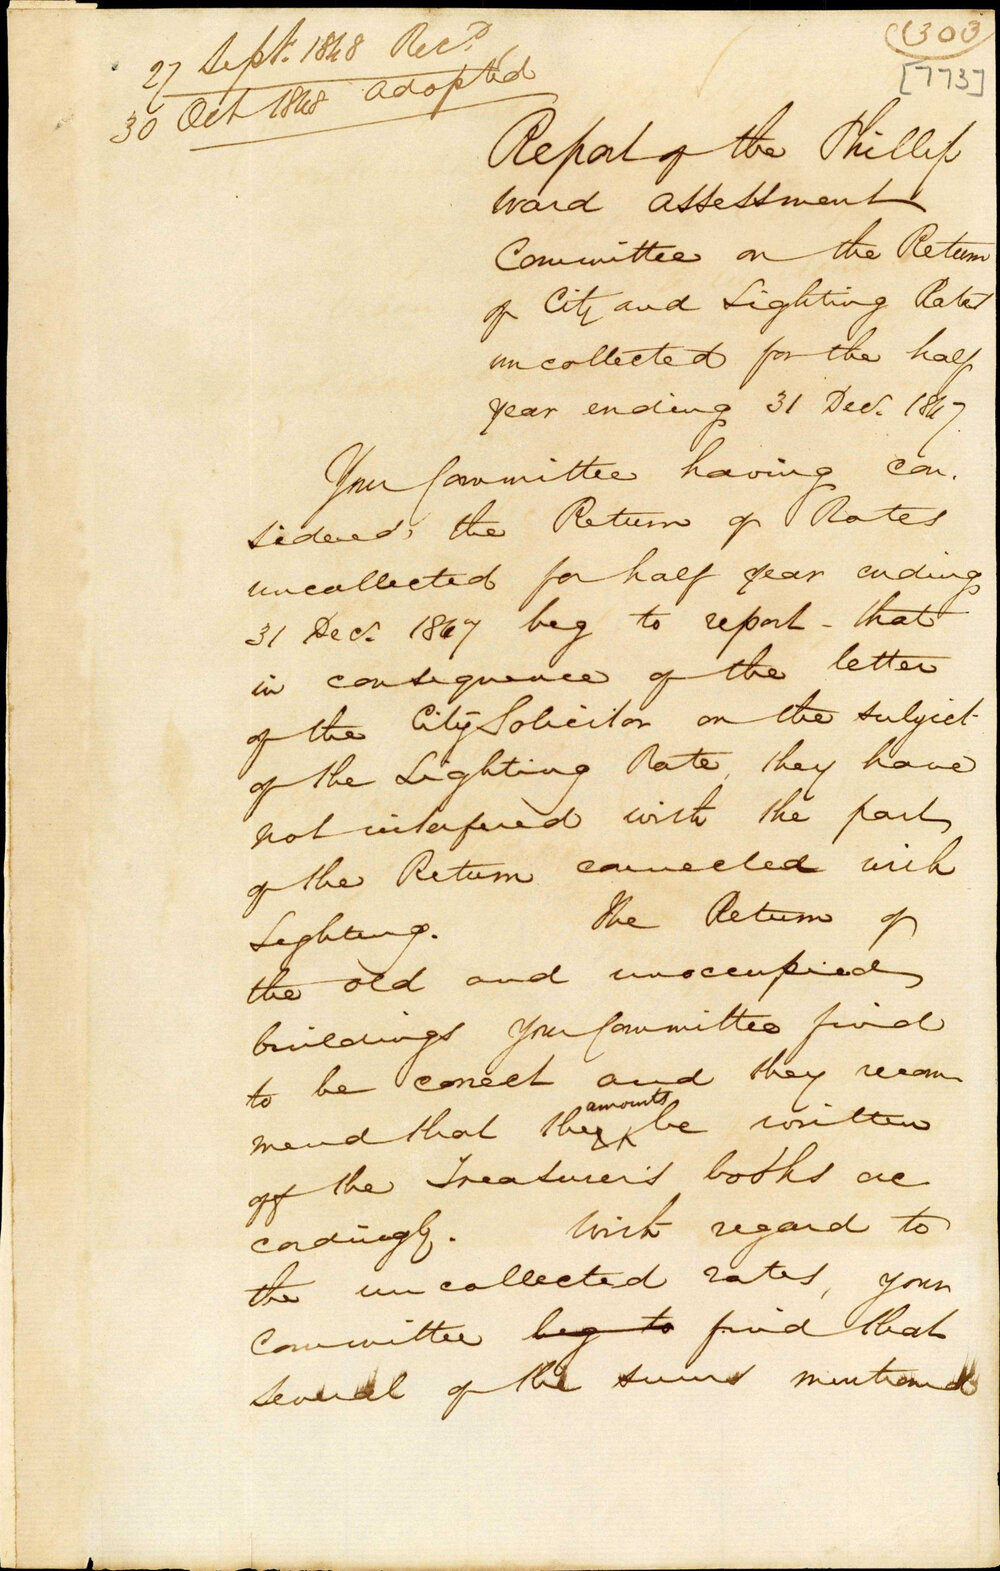 27 Sept. 1848 Recd
30 Oct 1848 adopted
(303)
[773]
Report of the Phillip
Ward Assessment
Committee on the Return
of City and Lighting Rates
uncollected for the half
year ending 31 Dec. 1847
Your Committee having con-
sidered, the Return of Rates
uncollected for half year ending
31 Dec. 1847 beg to report - that
in consequence of the letter
of the City Solicitor on the subject
of the Lighting Rate, they have
not interfered with the part
of the Return connected with
Lighting. The Return of
the old and unoccupied
buildings Your Committee find
to be correct and they recom
mend that the amounts be written
off the Treasurer's books ac
cordingly. With regard to
the uncollected rates, your
Committee beg to find that
several of the sums mentioned